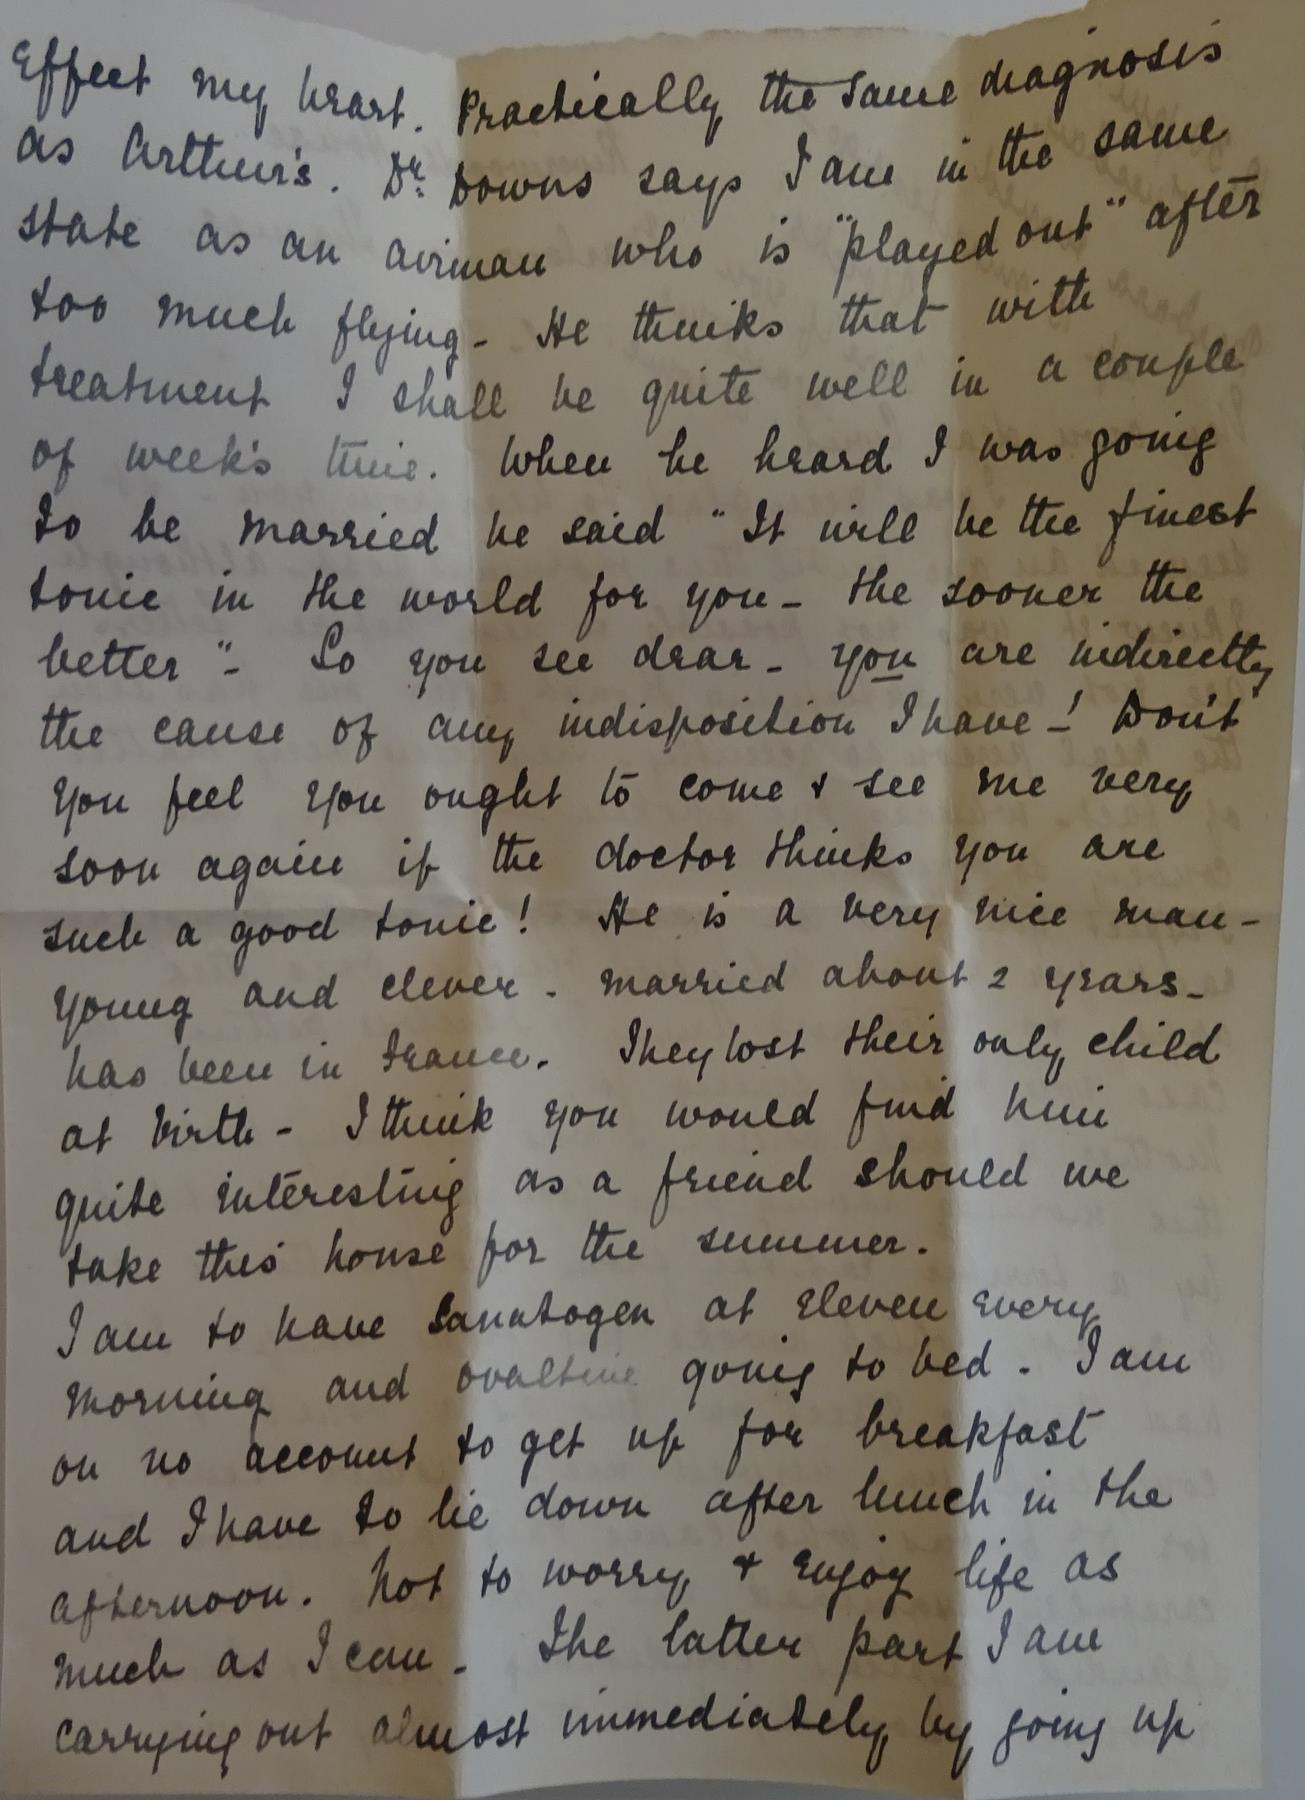 Effect my heart. Practically the same diagnosis
as Arthur's. Dr. Downs says I am in the same
state as an airman who is "played out" after
too much flying - He thinks that with
treatment I shall be quite well in a couple
of week's time. When he heard I was going
to be married he said "It will be the finest
tonic in the world for you - the sooner the
better" - So you see dear - you are indirectly
the cause of any indisposition I have - ! Don't
you feel you ought to come & see me very
soon again if the doctor thinks you are
such a good tonic! He is a very nice man -
young and clever - married about 2 years -
has been in France. They lost their only child
at birth - I think you would find him
quite interesting as a friend should we
take this house for the summer.
I am to have Sanatogen at eleven every
morning and ovaltine going to bed. I am
on no account to get up for breakfast
and I have to lie down after lunch in the
afternoon. Not to worry & enjoy life as
much as I can - The latter part I am
carrying out almost immediately by going up